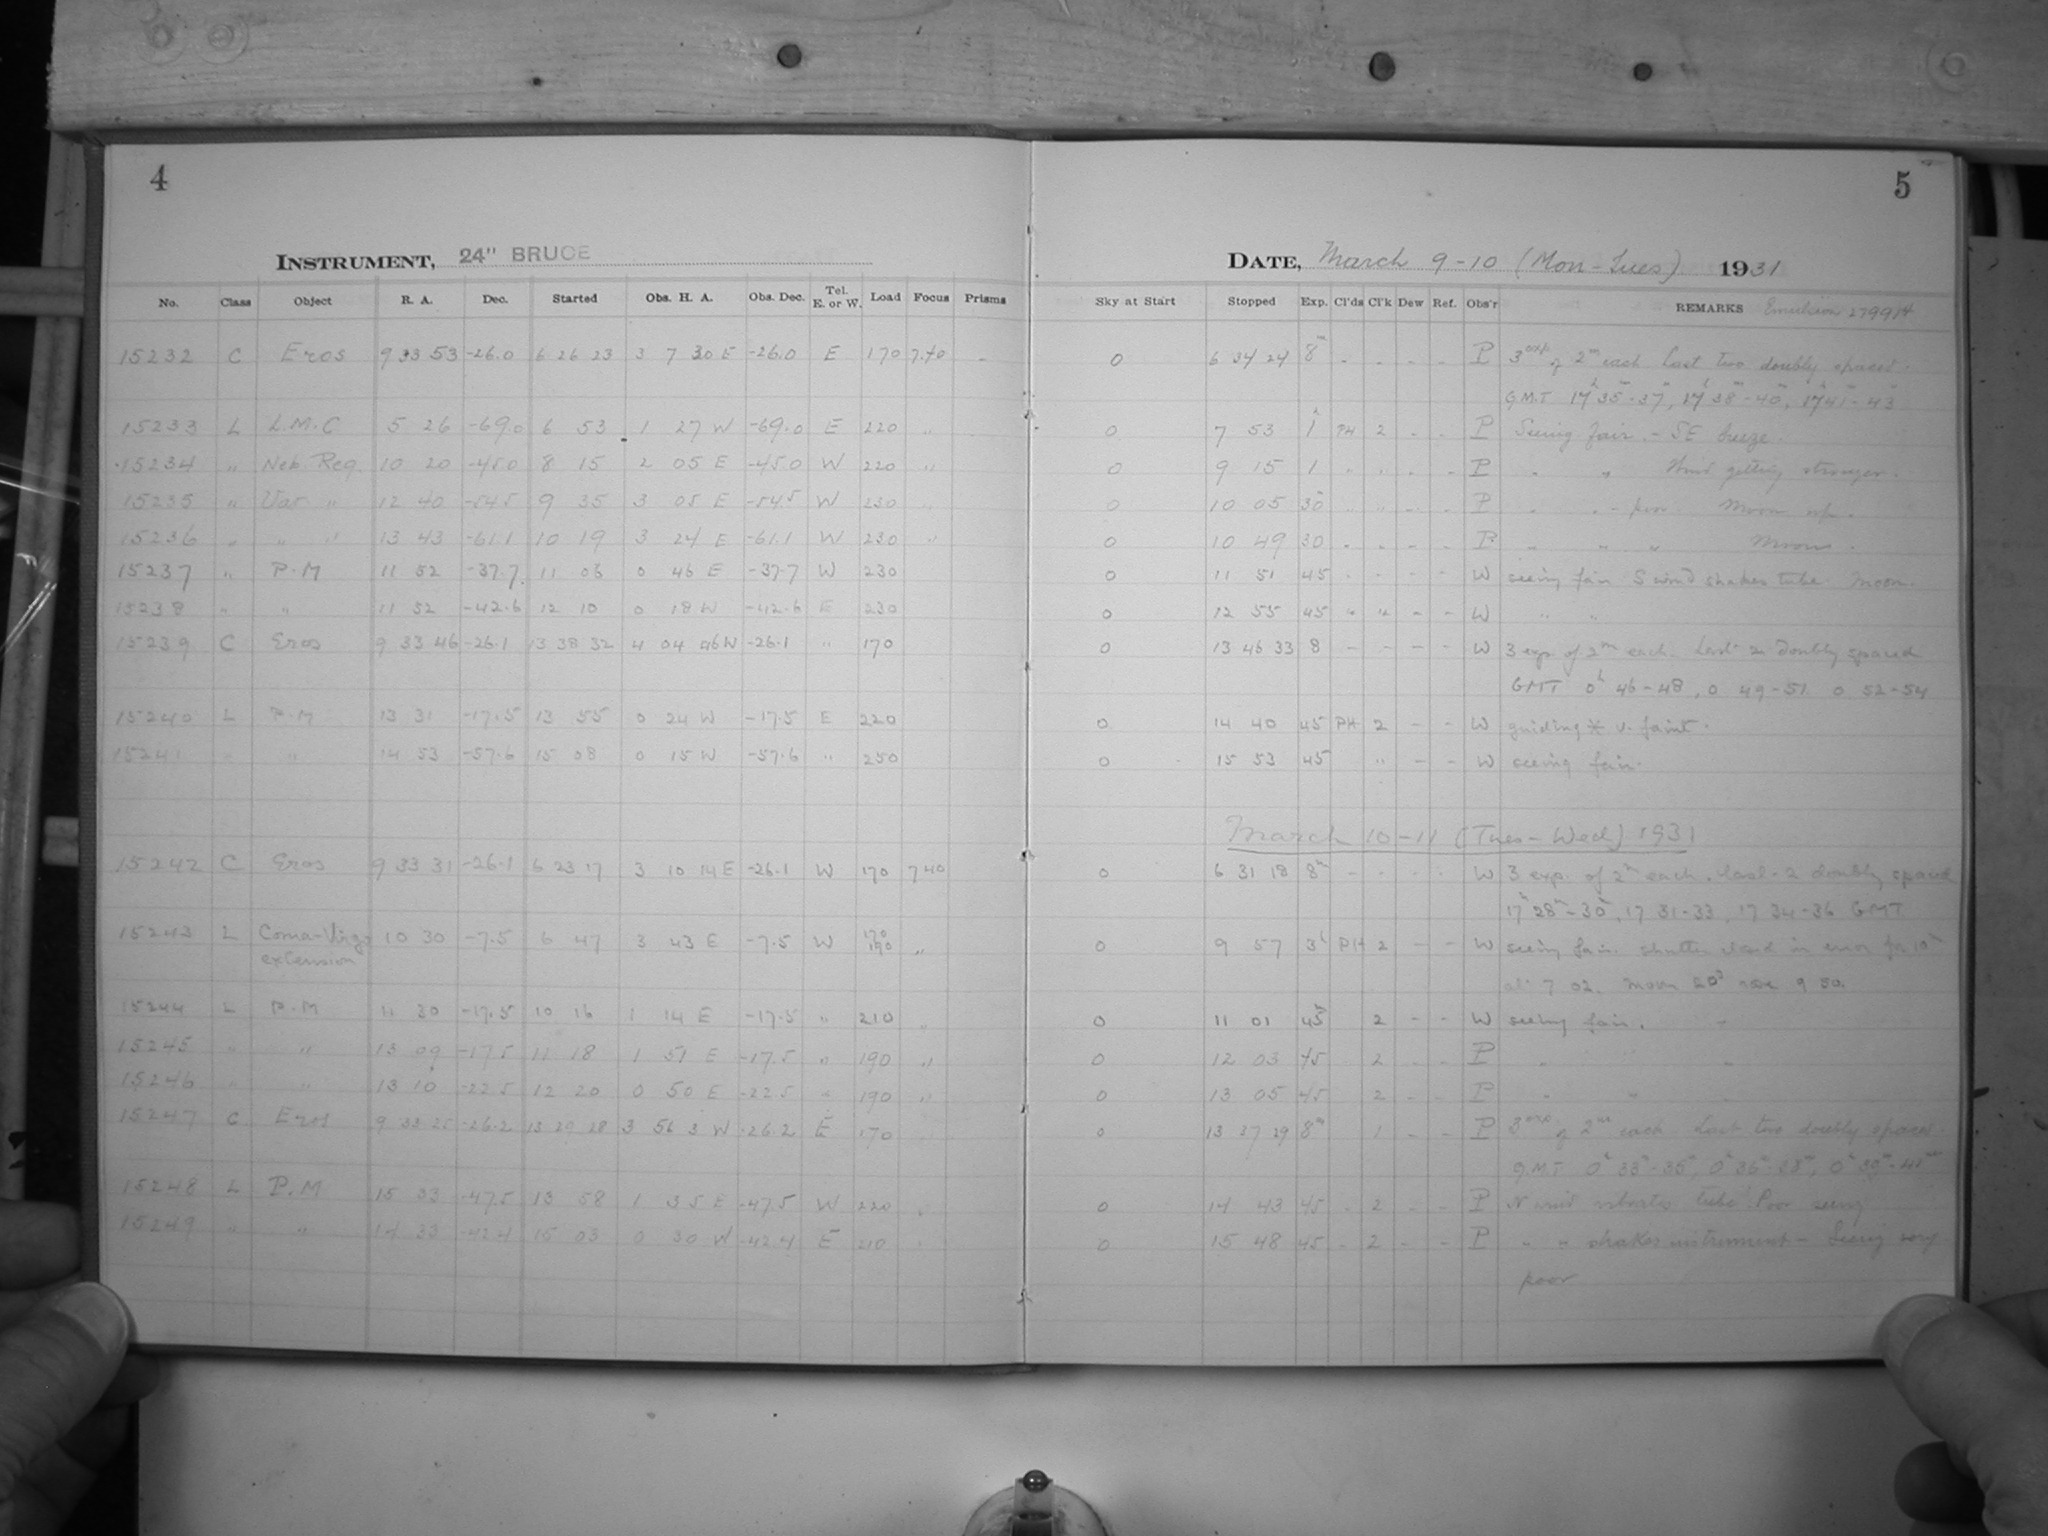 4
INSTRUMENT, 24" BRUCE
No. Class Object R. A. Dec. Started Obs. H. A. Obs. Dec. Tel. E. or W. Load Focus Prisms
15232 C Eros 9 33 53 -26.0 6 26 23 3 7 30 E -26.0 E 170 7.40
15233 L L.M.C 5 26 -69.0 6 53 1 27 W -69.0 E 220 "
15234 " Neb. Reg. 10 20 -45.0 8 15 2 05 E -45.0 W 220 "
15235 " Var. " 12 40 -54.5 9 35 3 05 E -54.5 W 230 "
15236 " " " 13 43 -61.1 10 19 3 24 E -61.1 W 230 "
15237 " P.M 11 52 -37.7 11 06 0 46 E -37.7 W 230
15238 " " 11 52 -42.6 12 10 0 18 W -42.6 E 230
15239 C Eros 9 33 46 -26.1 13 38 32 4 04 46 W -26.1 " 170
15240 L P.M 13 31 -17.5 13 55 0 24 W -17.5 E 220
15241 " " 14 53 -57.6 15 08 0 15 W -57.6 " 250
15242 C Eros 9 33 31 -26.1 6 23 17 3 10 14 E -26.1 W 170 7 40
15243 L Coma-Virgo 10 30 -7.5 6 47 3 43 E -7.5 W 170 190 "
extension
15244 L P.M 11 30 -17.5 10 16 1 14 E -17.5 " 210 "
15245 " " 13 09 -17.5 11 18 1 51 E -17.5 " 190 "
15246 " " 13 10 -22.5 12 20 0 50 E -22.5 " 190 "
15247 C Eros 9 33 25 -26.2 13 29 28 3 56 3 W -26.2 E 170
15248 L P.M 15 33 -47.5 13 58 1 35 E -47.5 W 220 "
15249 " " 14 33 -42.4 15 03 0 30 W -42.4 E 210
5
DATE, March 9-10 (Mon-Tues) 1931
Sky at Start Stopped Exp. Cl'ds Cl'k Dew Ref. Obs'r REMARKS Emulsion 27991
0 6 34 24 8m - - - - P 3 exp of 2m each Last two doubly spaced.
G.M.T 17h 35m-37m, 17h 38m-40m, 17h 41m-43m
0 7 53 1h PH 2 - - P Seeing fair. - SE breeze.
0 9 15 1 " " - - P " " Wind getting stronger.
0 10 05 30m " " - - P " " - poor Moon up.
0 10 49 30 " " - - P " " " Moon.
0 11 51 45 " " - - W seeing fair S wind shakes tube. Moon.
0 12 55 45 " " - - W " "
0 13 46 33 8 - - - - W 3 exp. of 2m each. Last 2 doubly spaced
GMT 0h 46-48, 0 49-51 0 52-54
0 14 40 45 PH 2 - - W guiding * v. faint.
0 15 53 45 " - - W seeing fair.
March 10-11 (Tues-Wed) 1931
0 6 31 18 8m - - - - W 3 exp. of 2m each. last 2 doubly spaced
17h 28m-30m, 17 31-33, 17 34-36 GMT
0 9 57 3h PH 2 - - W seeing fair. shutter closed in error for 10m
at 7 02. Moon rose 9 50.
0 11 01 45m 2 - - W seeing fair.
0 12 03 45 2 - - P
0 13 05 45 2 - - P " "
0 13 37 29 8m 1 - - P 3 exp of 2m each. Last two doubly spaced.
G.M.T 0h 33m-35m, 0h 36m-38m, 0h 39m-41m
0 14 43 45 - 2 - - P N wind tube. Poor seeing
0 15 48 45 - 2 - - P " " shakes instrument - Seeing very
poor